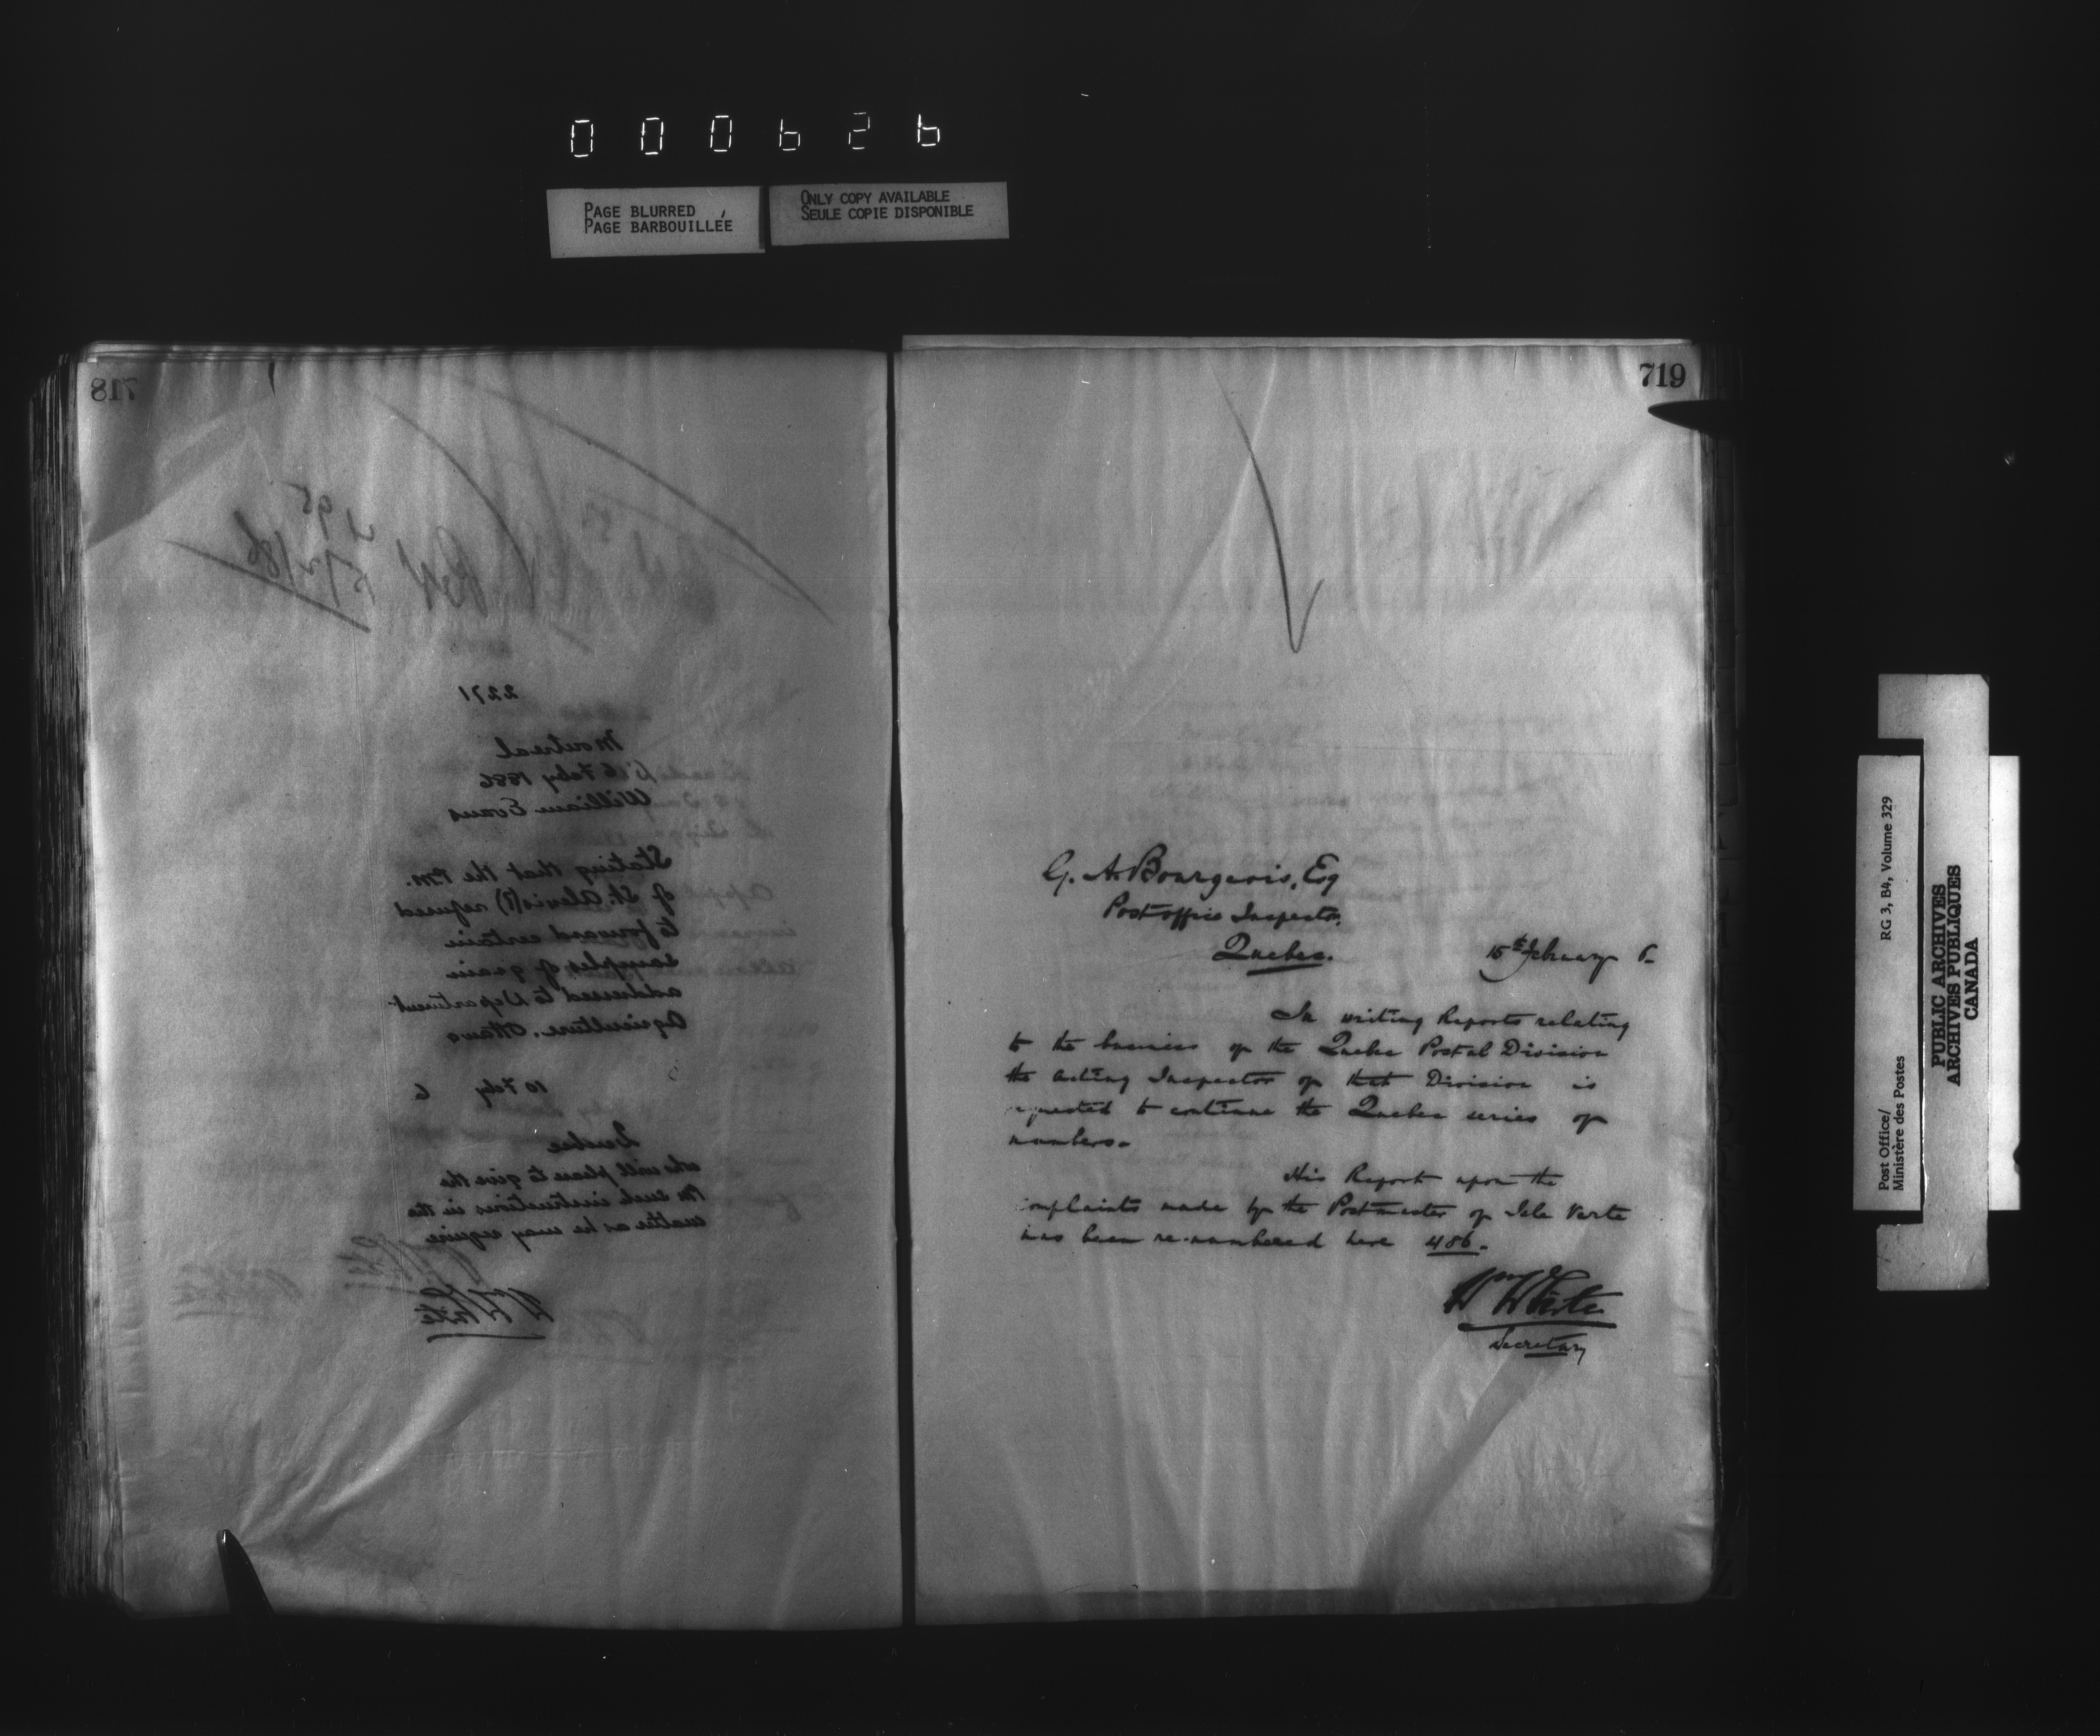 000626
PAGE BLURRED
PAGE BARBOUILLÉE
ONLY COPY AVAILABLE
SEULE COPIE DISPONIBLE
718
2271
Montreal
6 Feby 1886
William Evans
Stating that the P.M.
of St. Alexis(?) refused
to forward certain
samples of grain
addressed to Department
Agriculture. Ottawa
10 Feby 6
Quebec
who will please to give the
PM such instructions in the
matter as he may require
Wm White
719
G. A. Bourgeois, Esq
Post office Inspector,
Quebec.
15th February 6-
In writing Reports relating
to the business of the Quebec Postal Division
the acting Inspector of that Division is
requested to continue the Quebec series of
numbers-
His Report upon the
complaints made by the Postmaster of Isle Verte
has been re-numbered here 486.-
Wm White
Secretary
Post Office/
Ministère des Postes
RG 3, B4, Volume 329
PUBLIC ARCHIVES
ARCHIVES PUBLIQUES
CANADA